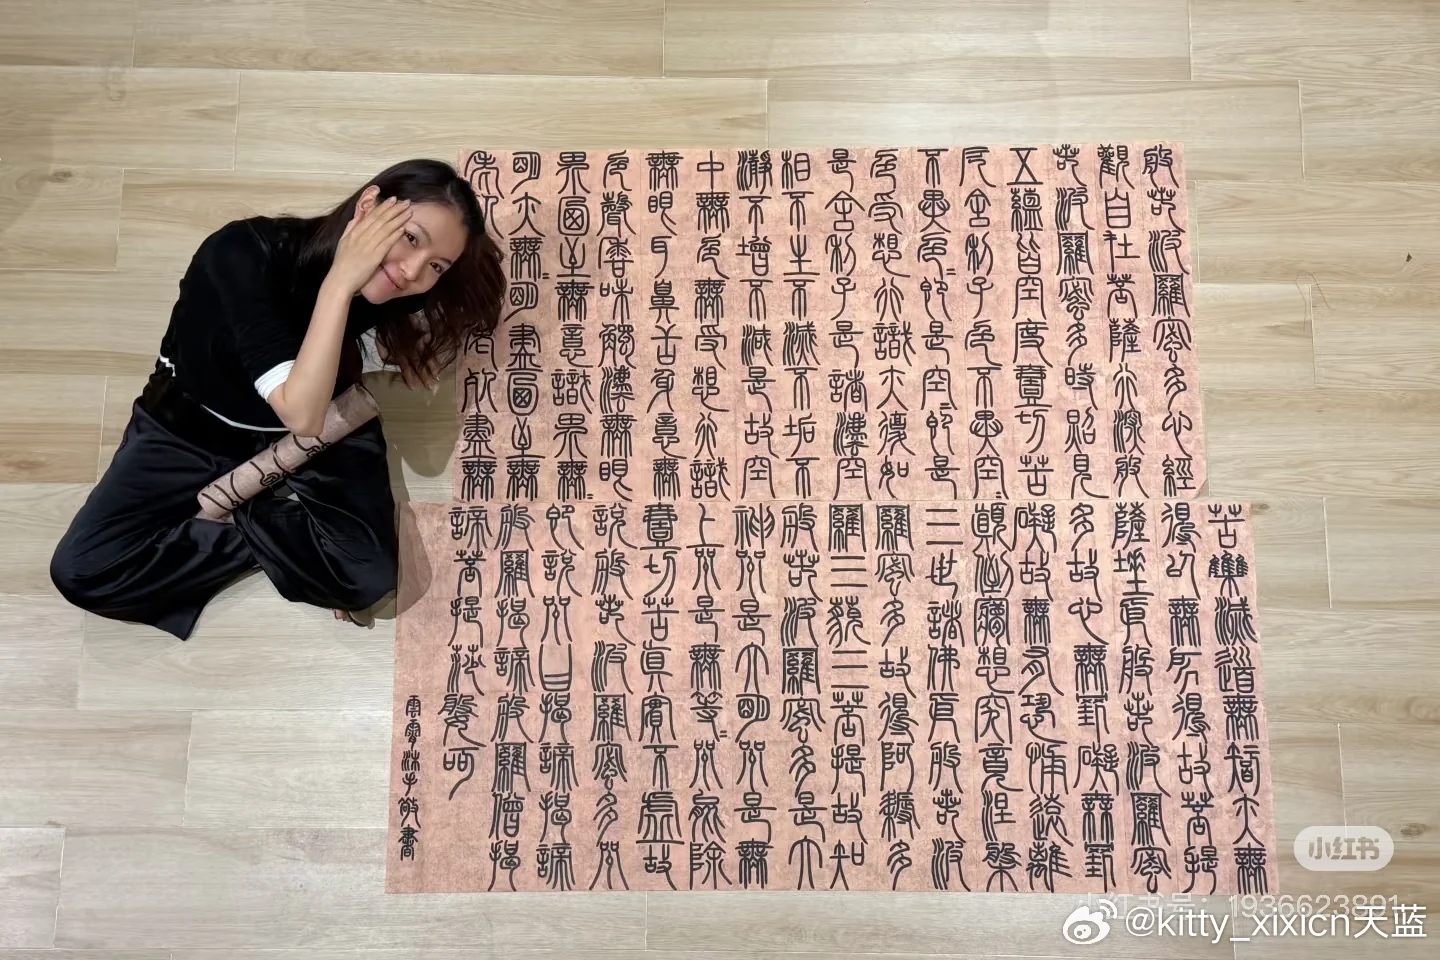 般若波羅蜜多心經
觀自在菩薩行深般
若波羅蜜多時照見
五蘊皆空度壹切苦
厄舍利子色不異空=
不異色=即是空=即是
色受想行識亦復如
是舍利子是諸灋空
相不生不滅不垢不
瀞不增不減是故空
中無色無受想行識
無眼耳鼻舌身意無
色聲香味觸灋無眼
界迺至無意識界無=
明亦無=明盡迺至無
老死老死盡無
苦集滅道無智亦無
得以無所得故菩提
薩埵依般若波羅蜜
多故心無罣礙無罣
礙故無有恐怖遠離
顛倒夢想究竟涅槃
三世諸佛依般若波
羅蜜多故得阿耨多
羅三藐三菩提故知
般若波羅蜜多是大
神咒是大明咒是無
上咒是無等=咒能除
壹切苦真實不虛故
說般若波羅蜜多咒
即說咒曰揭諦揭諦
般羅揭諦般羅僧揭
諦菩提莎婆呵
沐手敬書
小红书
小红书号：1936623801
@kitty_xixicn天蓝